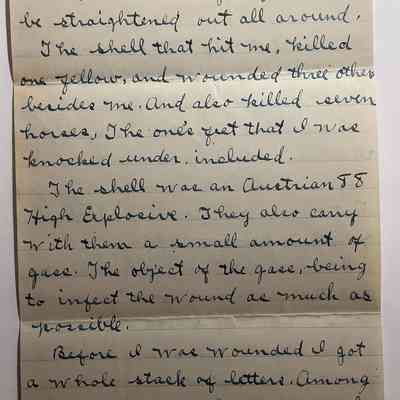 be straightened out all around.
The shell that hit me, killed
one fellow, and wounded three other
besides me. And also killed seven
horses, The one's feet that I was
knocked under, included.
The shell was an Austrian 88
High Explosive. They also carry
with them a small amount of
gase. The object of the gase, being
to infect the wound as much as
possible.
Before I was wounded I got
a whole stack of letters. Among